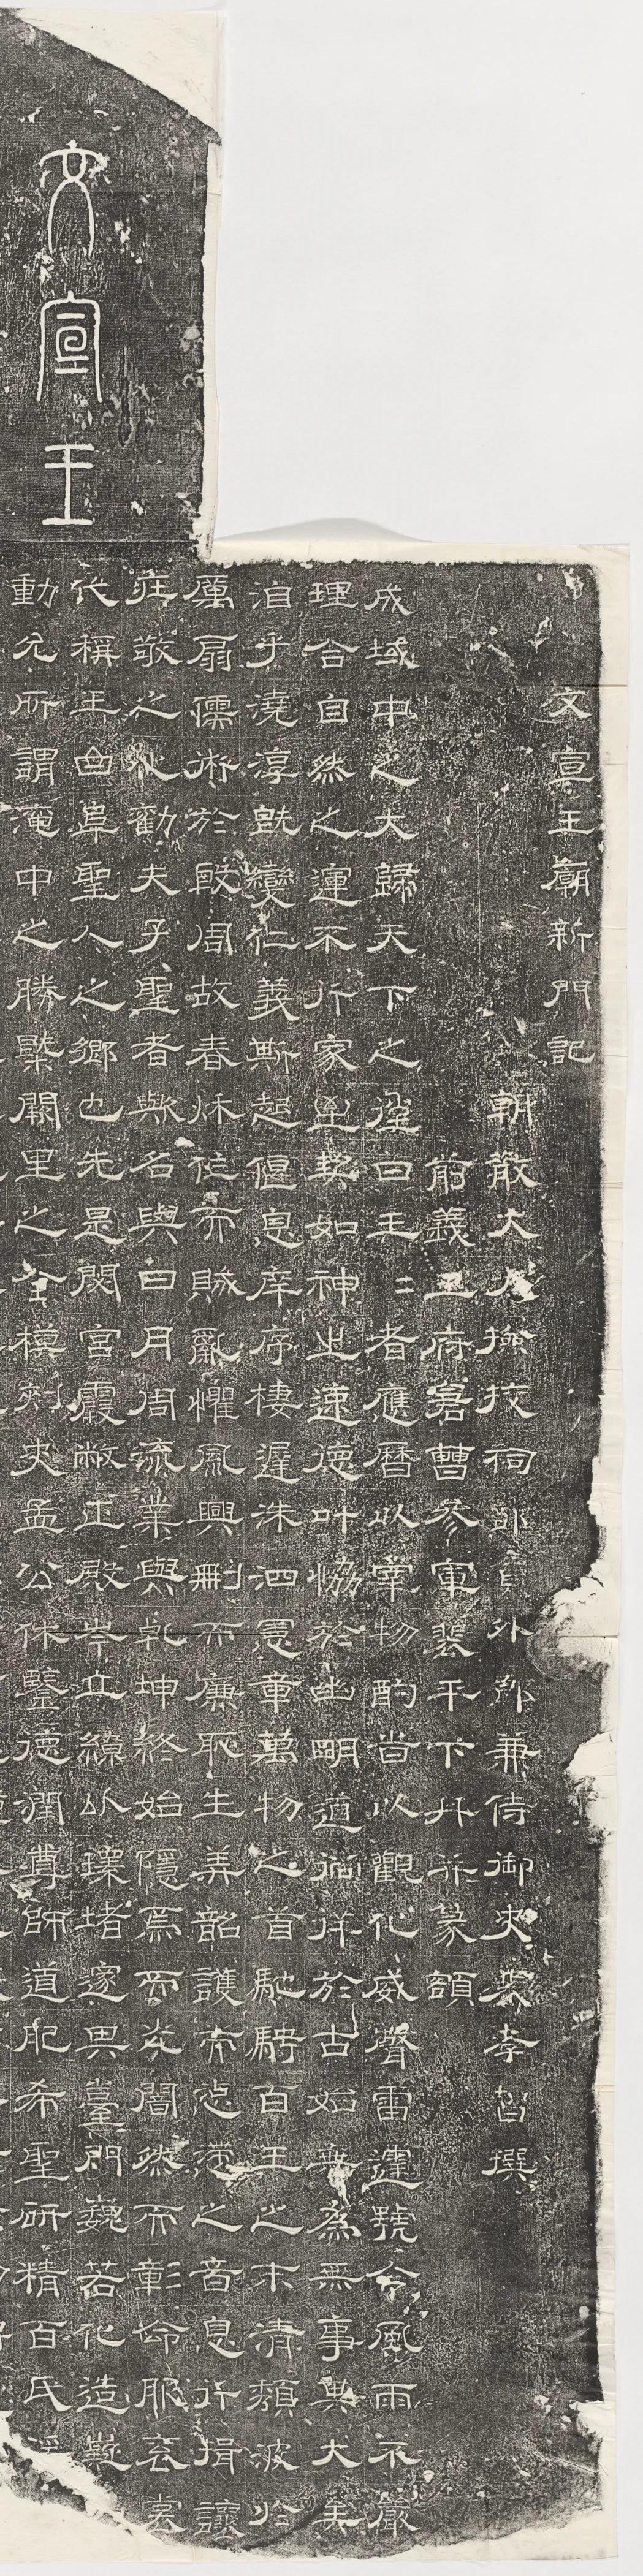 文宣王
文宣王廟新門記
朝散大夫撿挍祠部員外郎兼侍御史裴孝智撰
前義王府倉曹叅軍裴平下丹并篆額
成域中之大歸天下之往曰王=者應曆以宰物酌以觀化威聲雷運號令風雨不嚴
理合自然之運不行家至契如神之速德叶恊於幽明道祥於古始無為無事與大美
洎乎澆淳旣變仁義斯起偃息庠序棲遲洙泗憲章萬物之首馳騁百王之末清頹波於
厲扇儒術於殷周故春秋作而賊亂懼風興刪而廉耻生弄韶護而忿懘之音息行揖讓
莊敬之化勸夫子聖者歟名與日月周流業與乾坤終始隱焉而光闇然而彰命服衮裳
代稱王曲阜聖人之鄉也先是閟宮霞敞正殿岑立繚以環堵邃畀臺門巍若化造嶷
動允所謂淹中之勝槩闕里之全模刺史孟公休鑒德潤尊師道肥希聖研精百氏